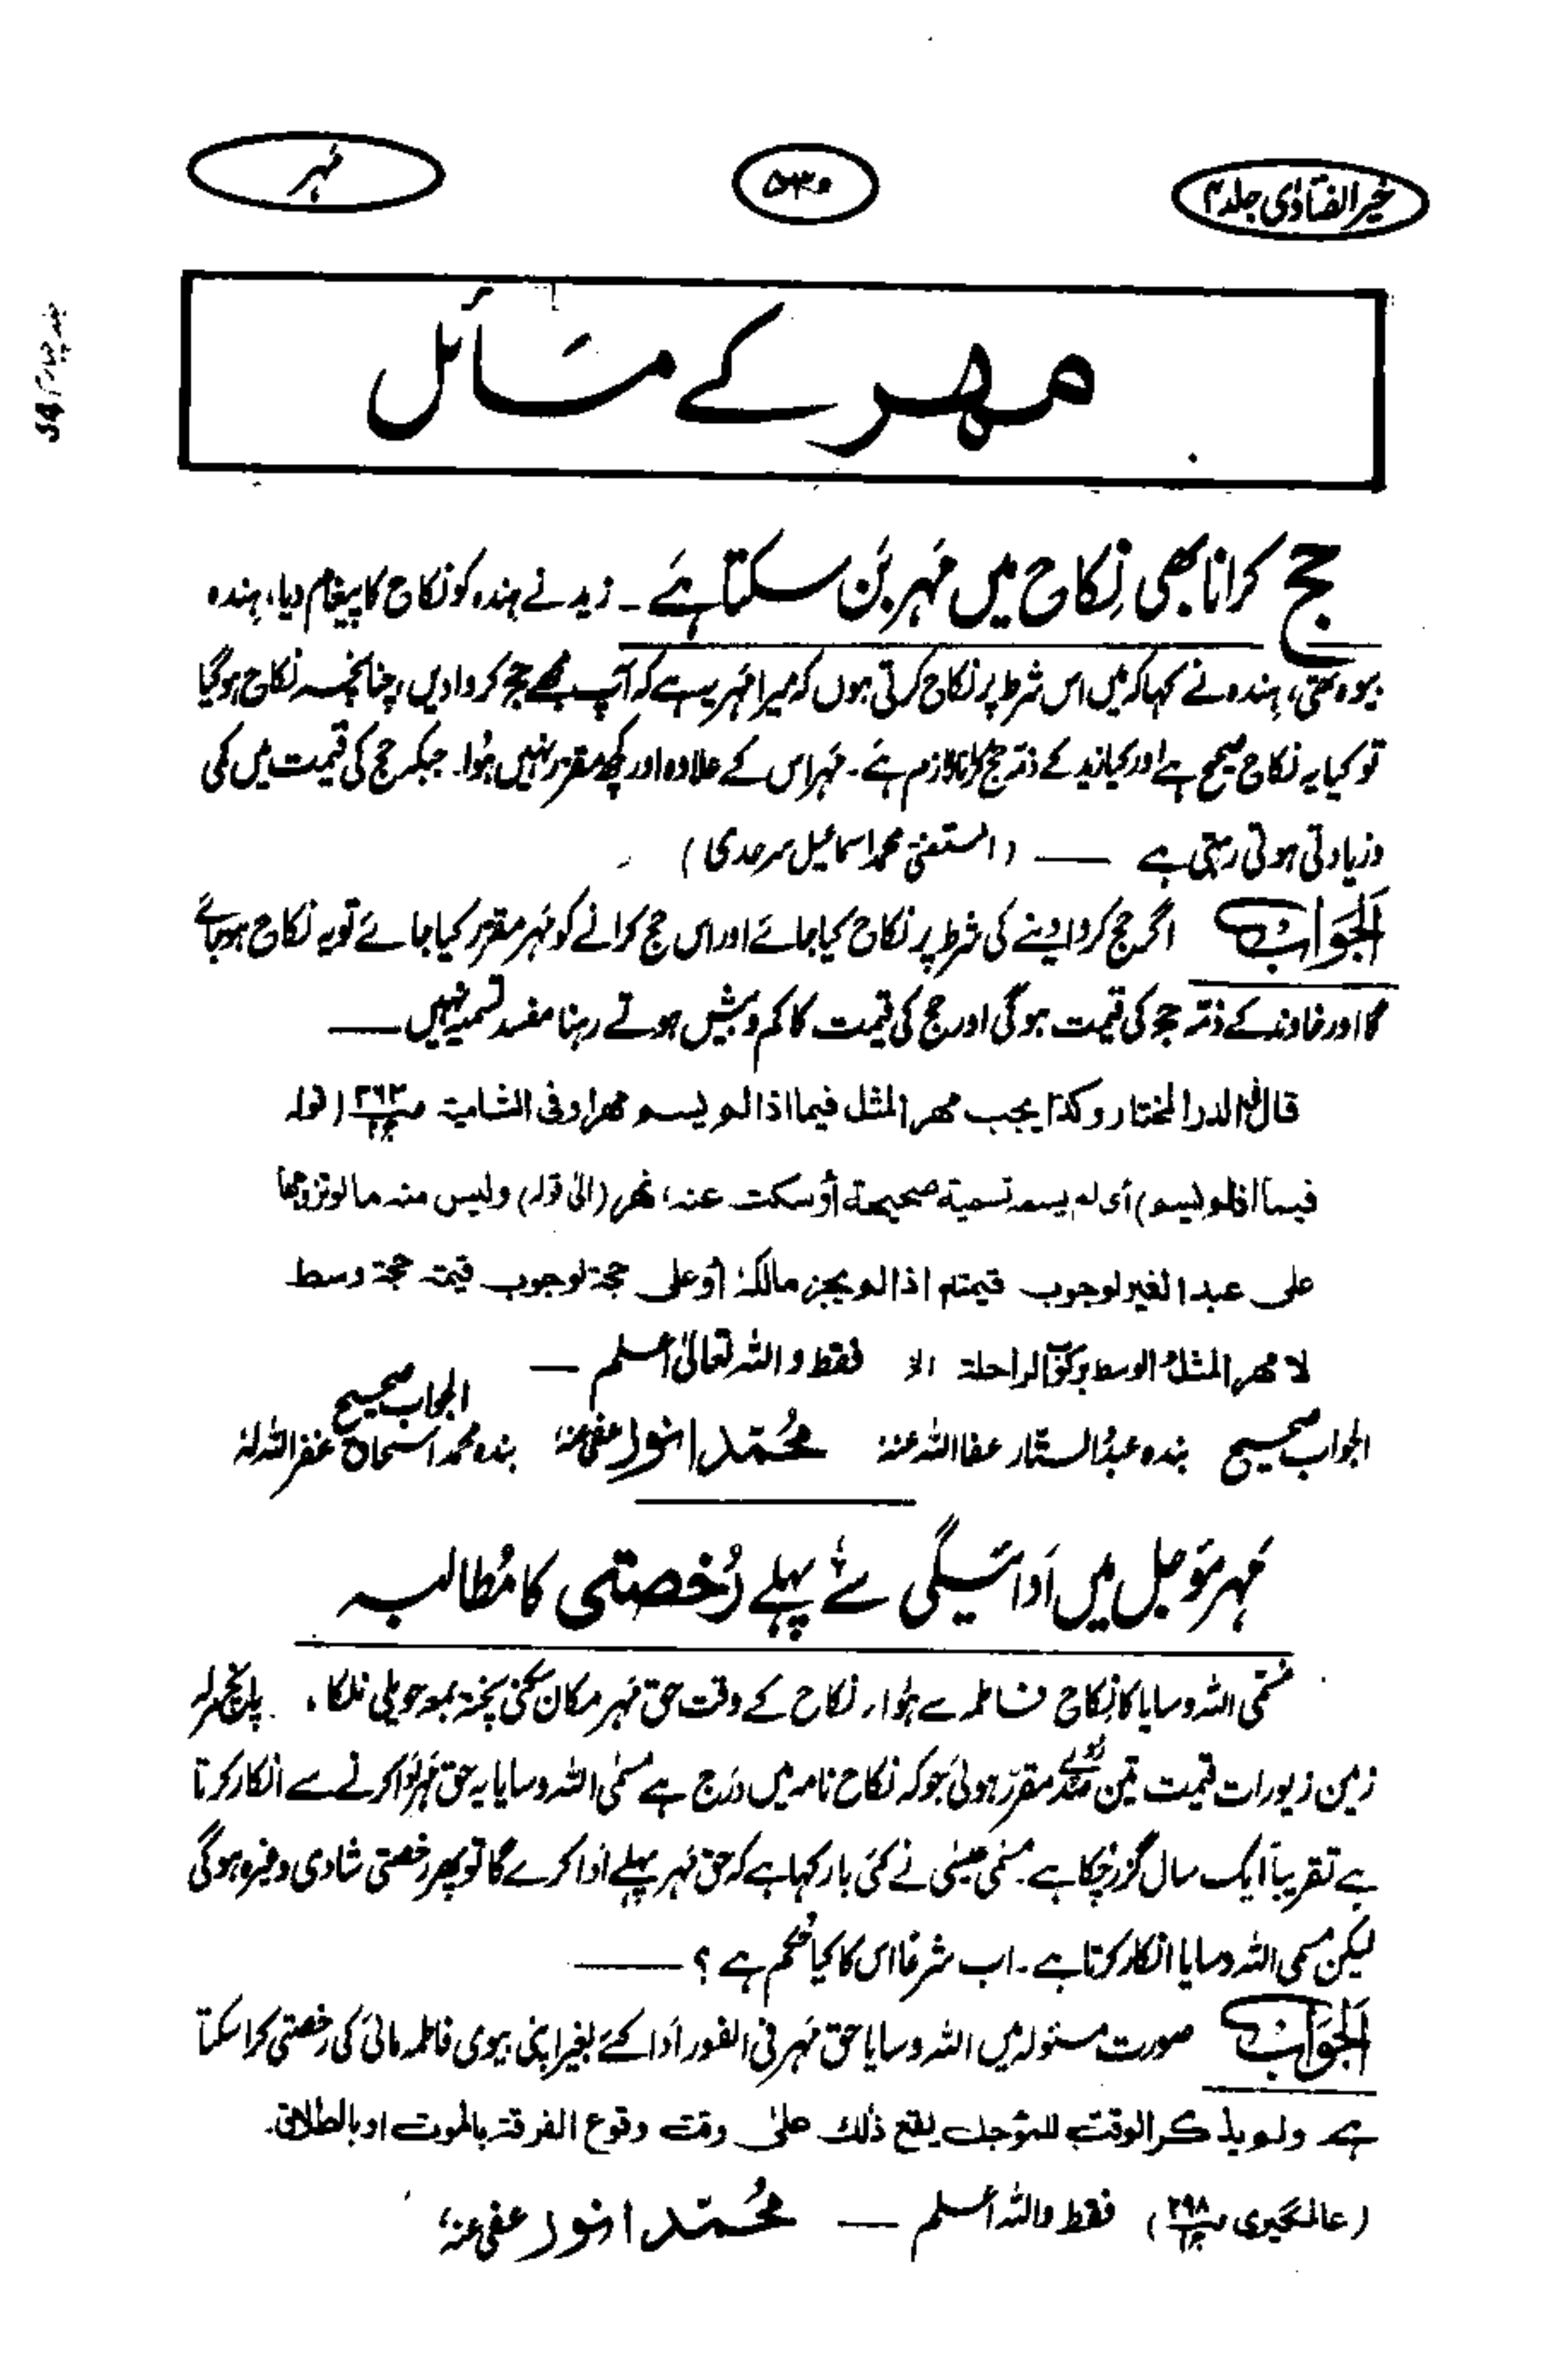 خیر الفتاوٰی جلد ۴
۵۳۰
مہر
مہر کے مسائل
حج کرانا بھی نکاح میں مہر بن سکتا ہے ۔ زید نے ہندہ کو نکاح کا پیغام دیا، ہندہ
بیوہ تھی، ہندہ نے کہا کہ میں اس شرط پر نکاح کرتی ہوں کہ میرا مہر یہ ہے کہ آپ مجھے حج کروا دیں، چنانچہ نکاح ہو گیا
تو کیا یہ نکاح صحیح ہے اور کیا زید کے ذمہ حج کرانا لازم ہے ۔ مہر اس کے علاوہ اور کچھ مقرر نہیں ہوا۔ جبکہ حج کی قیمت میں کمی
و زیادتی ہوتی رہتی ہے — (المستفتی محمد اسماعیل سرحدی)
الجواب اگر حج کروا دینے کی شرط پر نکاح کیا جائے اور اس حج کرانے کو مہر مقرر کیا جائے تو یہ نکاح ہو جائے
گا اور خاوند کے ذمہ حج کی قیمت ہوگی اور حج کی قیمت کا کم و بیش ہوتے رہنا مفسد تسمیہ نہیں —
قال فی الدر المختار وکذا یجب مهر المثل فیما اذا لم یسم مهرا وفی الشامیة ص۳۶۲ ج۲ (قوله
فیما اذا لم یسم) أی لم یسمه تسمیة صحیحة أو سکت عنه، نهر (الیٰ قوله) ولیس منه ما لو تزوجها
علی عبد الغیر لوجوب قیمته اذا لم یجز مالکهٗ أو علی حجة لوجوب قیمة حجة وسط
لا مهر المثل والوسط برکوب الراحلة الخ فقط واللہ تعالیٰ اعلم —
الجواب صحیح
الجواب صحیح بندہ عبدالستار عفا اللہ عنہ محمد انور عفی عنہ بندہ محمد اسحاق غفر اللہ لہ
مہر مؤجل میں ادائیگی سے پہلے رخصتی کا مطالبہ
مسمی اللہ وسایا کا نکاح فاطمہ سے ہوا۔ نکاح کے وقت حق مہر مکان سکنی پختہ بمعہ حویلی نلکا، پانچ مرلہ
زمین زیورات قیمت تین مقرر ہوئی جو کہ نکاح نامہ میں درج ہے مسمی اللہ وسایا یہ حق مہر ادا کرنے سے انکار کرتا
ہے تقریباً ایک سال گزر چکا ہے۔ مسمی عیسٰی نے کئی بار کہا ہے کہ حق مہر پہلے ادا کرے گا تو پھر رخصتی شادی وغیرہ ہوگی
لیکن مسمی اللہ وسایا انکار کرتا ہے ۔ اب شرعاً اس کا کیا حکم ہے؟ —
الجواب صورت مسئولہ میں اللہ وسایا حق مہر فی الفور ادا کئے بغیر اپنی بیوی فاطمہ مائی کی رخصتی کرا سکتا
ہے ولم یذکر الوقت للمؤجل یقع ذلك علیٰ وقت وقوع الفرقة بالموت او بالطلاق۔
(عالمگیری ص۲۹۸ ج۱) فقط واللہ اعلم — محمد انور عفی عنہ،